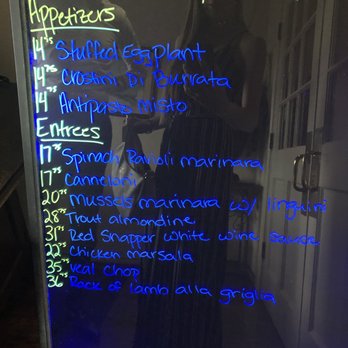 Appetizers
14⁷⁵ Stuffed Eggplant
14⁷⁵ Crostini Di Burrata
14⁷⁵ Antipasto Misto
Entrees
17⁷⁵ Spinach Ravioli marinara
17⁷⁵ Canneloni
20⁷⁵ mussels marinara w/ linguini
28⁷⁵ Trout almondine
31⁷⁵ Red Snapper white wine sauce
22⁷⁵ Chicken marsala
35⁷⁵ veal Chop
36⁷⁵ Rack of lamb alla griglia